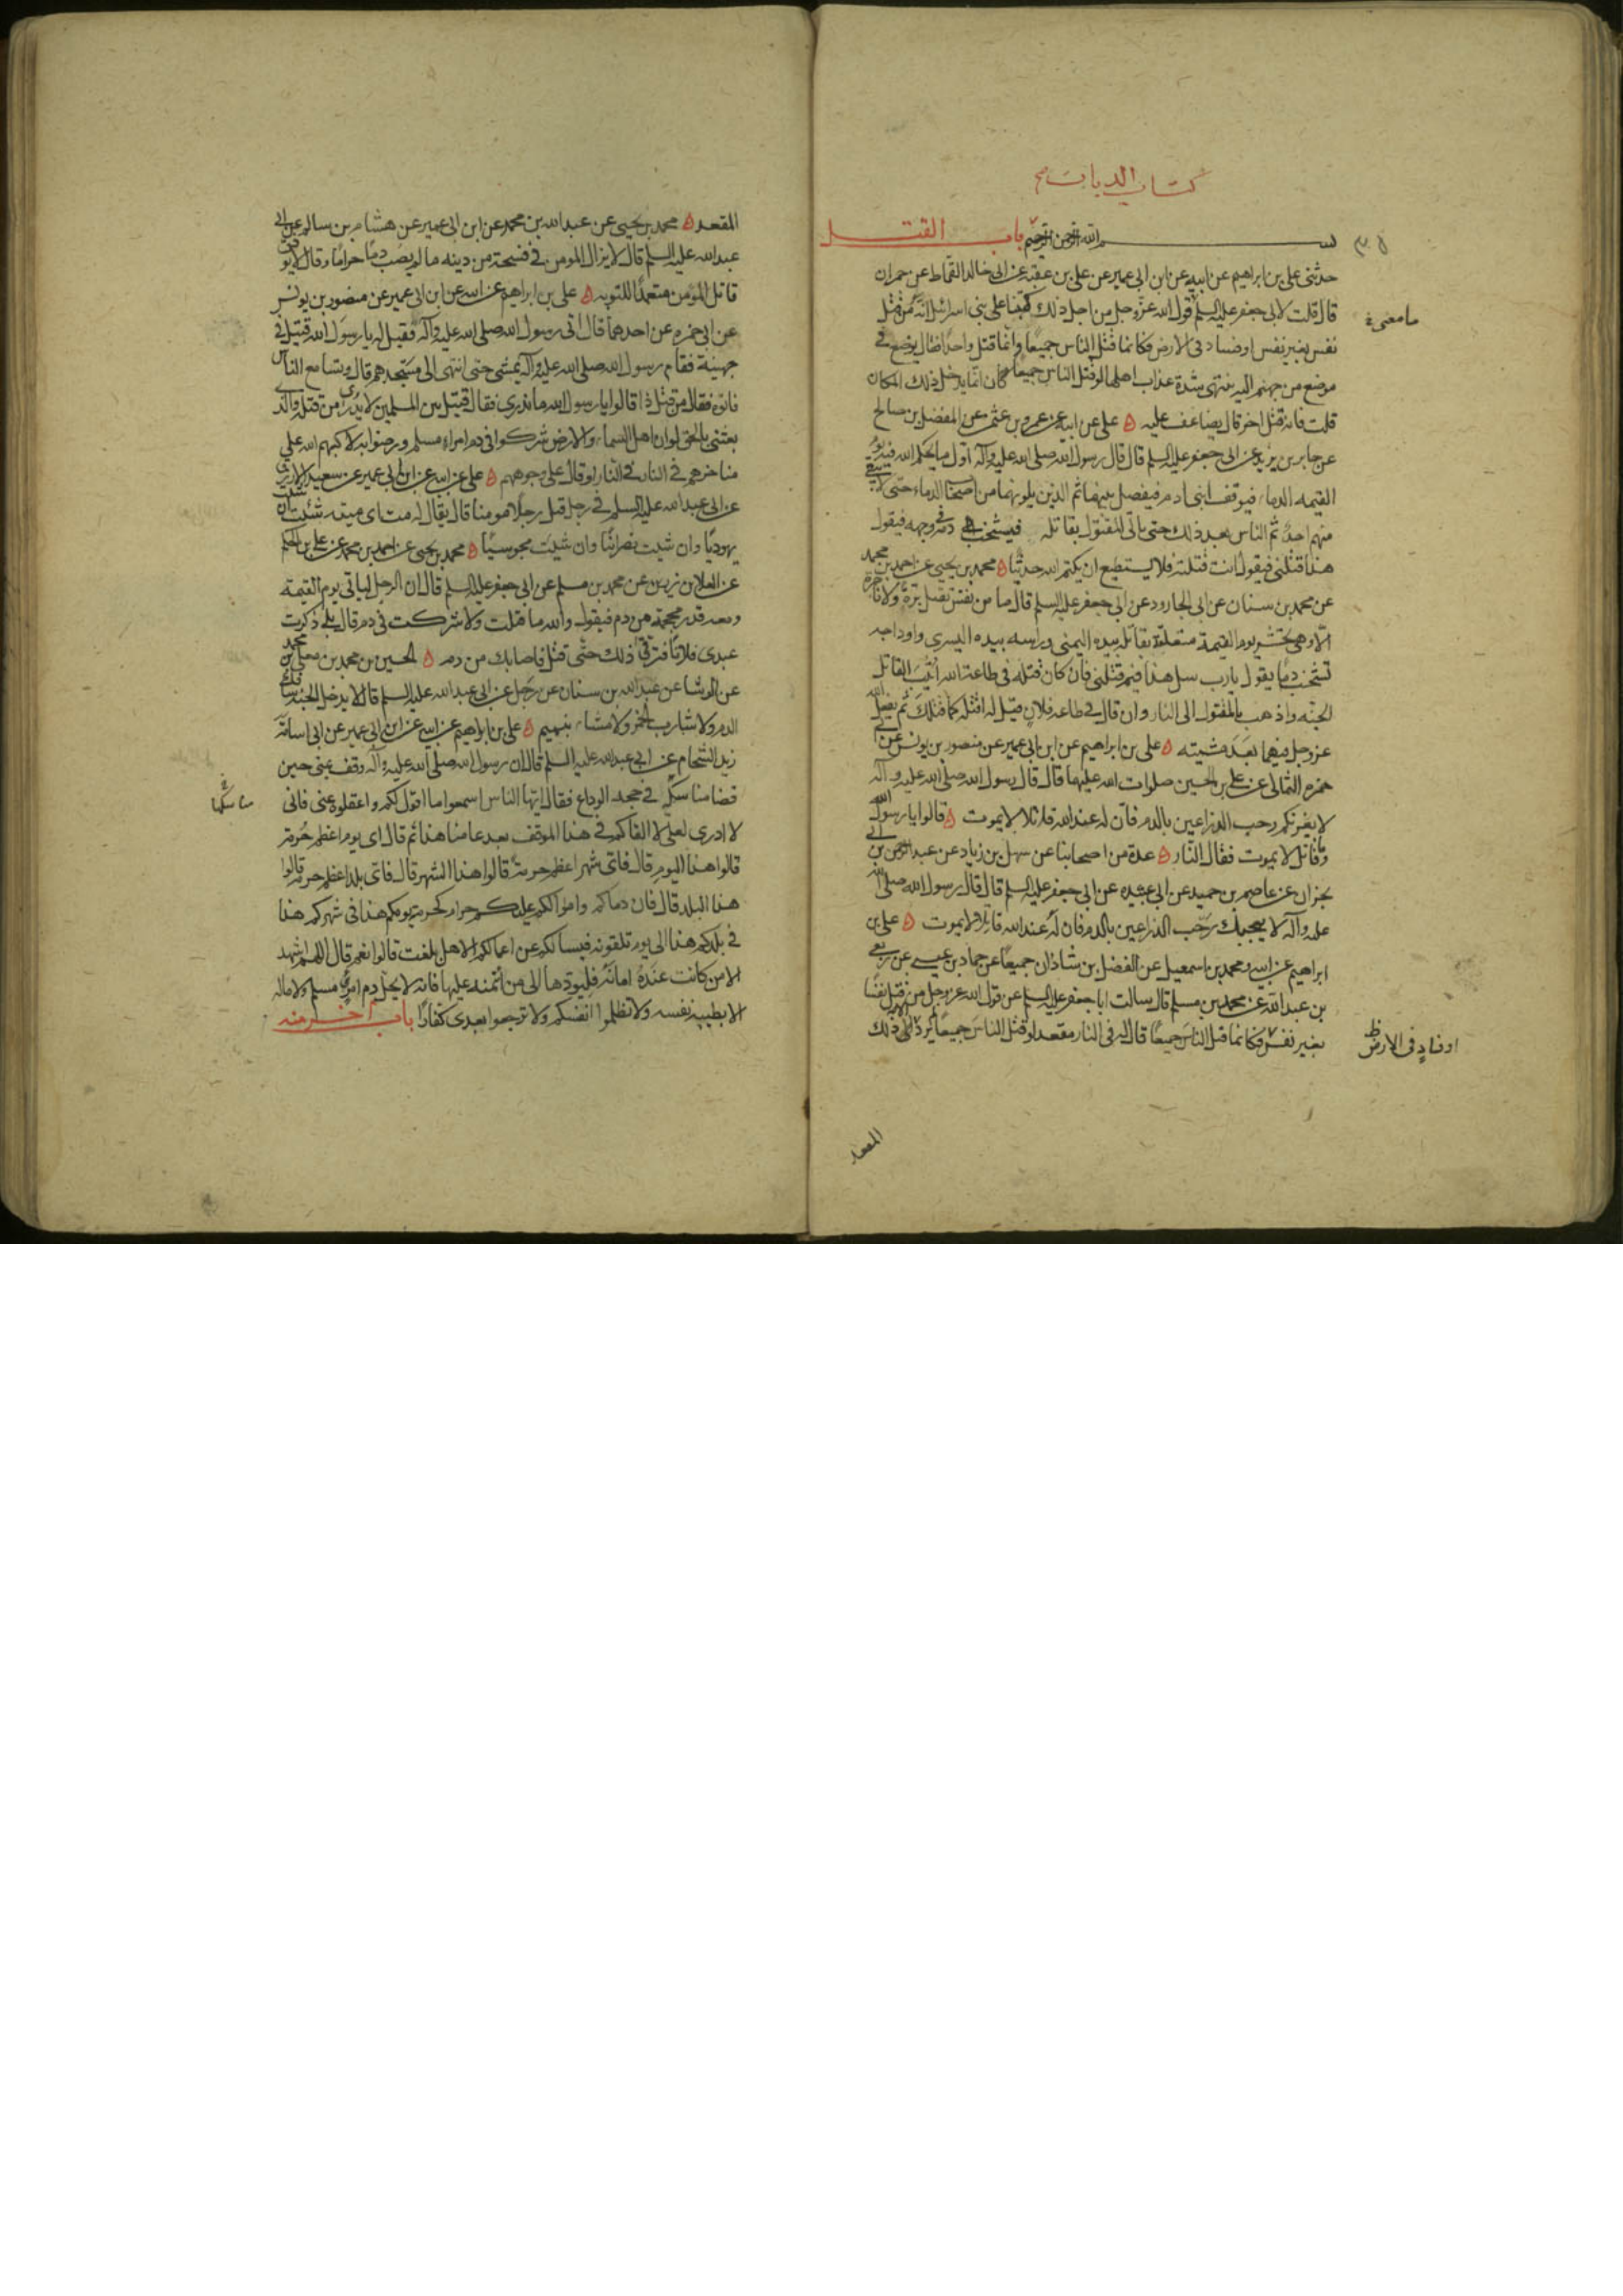 كتاب الديات
٣٥
بسم الله الرحمن الرحيم باب القتل
حدثنى على بن ابراهيم عن ابيه عن ابن ابى عمير عن على بن عقبه عن ابى خالد القماط عن حمران
قال قلت لابى جعفر عليه السلم قول الله عز وجل من اجل ذلك كتبنا على بنى اسرائيل انه من قتل
ما معنى
نفس بغير نفس او فساد فى الارض فكانما قتل الناس جميعا وانما قتل واحدا فقال يوضع فى
موضع من جهنم اليه ينتهى شدة عذاب اهلها لو قتل الناس جميعا كان انما يدخل ذلك المكان
قلت فانه قتل اخر قال يضاعف عليه ه على عن ابيه عن عمرو بن عثمن عن المفضل بن صالح
عن جابر بن يزيد عن ابى جعفر عليه السلم قال قال رسول الله صلى الله عليه وآله اول ما يحكم الله فيه يوم
القيمه الدماء فيوقف ابنى ادم فيفصل بينهما ثم الذين يلونهما من اصحاب الدماء حتى لا يبقى
منهم احد ثم الناس بعد ذلك حتى ياتى المقتول بقاتله فيشخب دمه فى وجهه فيقول
هذا قتلنى فيقول انت قتلته فلا يستطيع ان يكتم الله حديثا ه محمد بن يحيى عن احمد بن محمد
عن محمد بن سنان عن ابى الجارود عن ابى جعفر عليه السلم قال ما من نفس تقتل برة ولا فاجرة
الا وهى تحشر يوم القيمة متعلقة بقاتله بيده اليمنى وراسه بيده اليسرى واوداجه
تشخب دما يقول يا رب سل هذا فيم قتلنى فان كان قتله فى طاعة الله اثيب القاتل
الجنة واذهب بالمقتول الى النار وان قال فى طاعه فلان قيل له اقتله كما قتلك ثم يفعل الله
عز وجل فيهما بعد مشيته ه على بن ابراهيم عن ابن ابى عمير عن منصور بن يونس عن ابى
حمزه الثمالى عن على بن الحسين صلوات الله عليهما قال قال رسول الله صلى الله عليه وآله
لا يغرنكم رحب الذراعين بالدم فان له عند الله قاتلا لا يموت ه قالوا يا رسول الله
وقاتل لا يموت فقال النار ه عدة من اصحابنا عن سهل بن زياد عن عبد الرحمن بن ابى
نجران عن عاصم بن حميد عن ابى عبيده عن ابى جعفر عليه السلم قال قال رسول الله صلى الله
عليه وآله لا يعجبك رحب الذراعين بالدم فان له عند الله قاتلا لا يموت ه على بن
ابراهيم عن ابيه ومحمد بن اسمعيل عن الفضل بن شاذان جميعا عن حماد بن عيسى عن ربعى
بن عبد الله عن محمد بن مسلم قال سالت ابا جعفر عليه السلم عن قول الله عز وجل من قتل نفسا
بغير نفس فكانما قتل الناس جميعا قال له فى النار مقعد لو قتل الناس جميعا لم يرد الا الى ذلك
او فساد فى الارض
المقعد
المقعد ه محمد بن يحيى عن عبد الله بن محمد عن ابن ابى عمير عن هشام بن سالم عن ابى
عبد الله عليه السلم قال لا يزال المومن فى فسحة من دينه ما لم يصب دما حراما وقال لا يوفق
قاتل المؤمن متعمدا للتوبه ه على بن ابراهيم عن ابيه عن ابن ابى عمير عن منصور بن يونس
عن ابى حمزه عن احدهما قال اتى رسول الله صلى الله عليه وآله فقيل له يا رسول الله قتيل فى
جهينة فقام رسول الله صلى الله عليه وآله يمشى حتى انتهى الى مسجدهم قال وتسامع الناس
فاتوه فقال من قتل ذا قالوا يا رسول الله ما ندرى فقال قتيل بين المسلمين لا يدرى من قتله والذى
بعثنى بالحق لو ان اهل السماء والارض شركوا فى دم امرء مسلم ورضوا به لاكبهم الله على
مناخرهم فى النار او قال على وجوههم ه على عن ابيه عن ابن ابى عمير عن سعيد الازرق
عن ابى عبد الله عليه السلم فى رجل قتل رجلا مومنا قال يقال له مت اى ميته شئت ان شئت
يهوديا وان شيت نصرانيا وان شيت مجوسيا ه محمد بن يحيى عن احمد بن محمد عن على بن الحكم
عن العلا بن رزين عن محمد بن مسلم عن ابى جعفر عليه السلم قال ان الرجل لياتى يوم القيمة
ومعه قدر محجمة من دم فيقول والله ما قتلت ولا شركت فى دم قال بلى ذكرت
عبدى فلانا فترقى ذلك حتى قتل فاصابك من دمه ه الحسين بن محمد بن معلى بن محمد
عن الوشا عن عبد الله بن سنان عن رجل عن ابى عبد الله عليه السلم قال لا يدخل الجنة سافك
الدم ولا شارب الخمر ولا مشاء بنميم ه على بن ابراهيم عن ابيه عن ابن ابى عمير عن ابى اسامة
زيد الشحام عن ابى عبد الله عليه السلم قال ان رسول الله صلى الله عليه وآله وقف بمنى حين
قضا مناسكه فى حجه الوداع فقال ايها الناس اسمعوا ما اقول لكم واعقلوه عنى فانى
مناسكها
لا ادرى لعلى لا القاكم فى هذا الموقف بعد عامنا هذا ثم قال اى يوم اعظم حرمة
قالوا هذا اليوم قال فاى شهر اعظم حرمة قالوا هذا الشهر قال فاى بلد اعظم حرمه قالوا
هذا البلد قال فان دماكم واموالكم عليكم حرام كحرمة يومكم هذا فى شهركم هذا
فى بلدكم هذا الى يوم تلقونه فيسالكم عن اعمالكم الا هل بلغت قالوا نعم قال اللهم اشهد
الا من كانت عنده امانة فليودها الى من ائتمنه عليها فانه لا يحل دم امرئ مسلم ولا ماله
الا بطيبة نفسه ولا تظلموا انفسكم ولا ترجعوا بعدى كفارا باب اخر منه